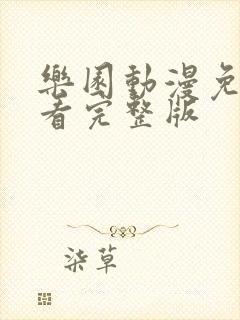 樂園動漫免
看完整版
柒草